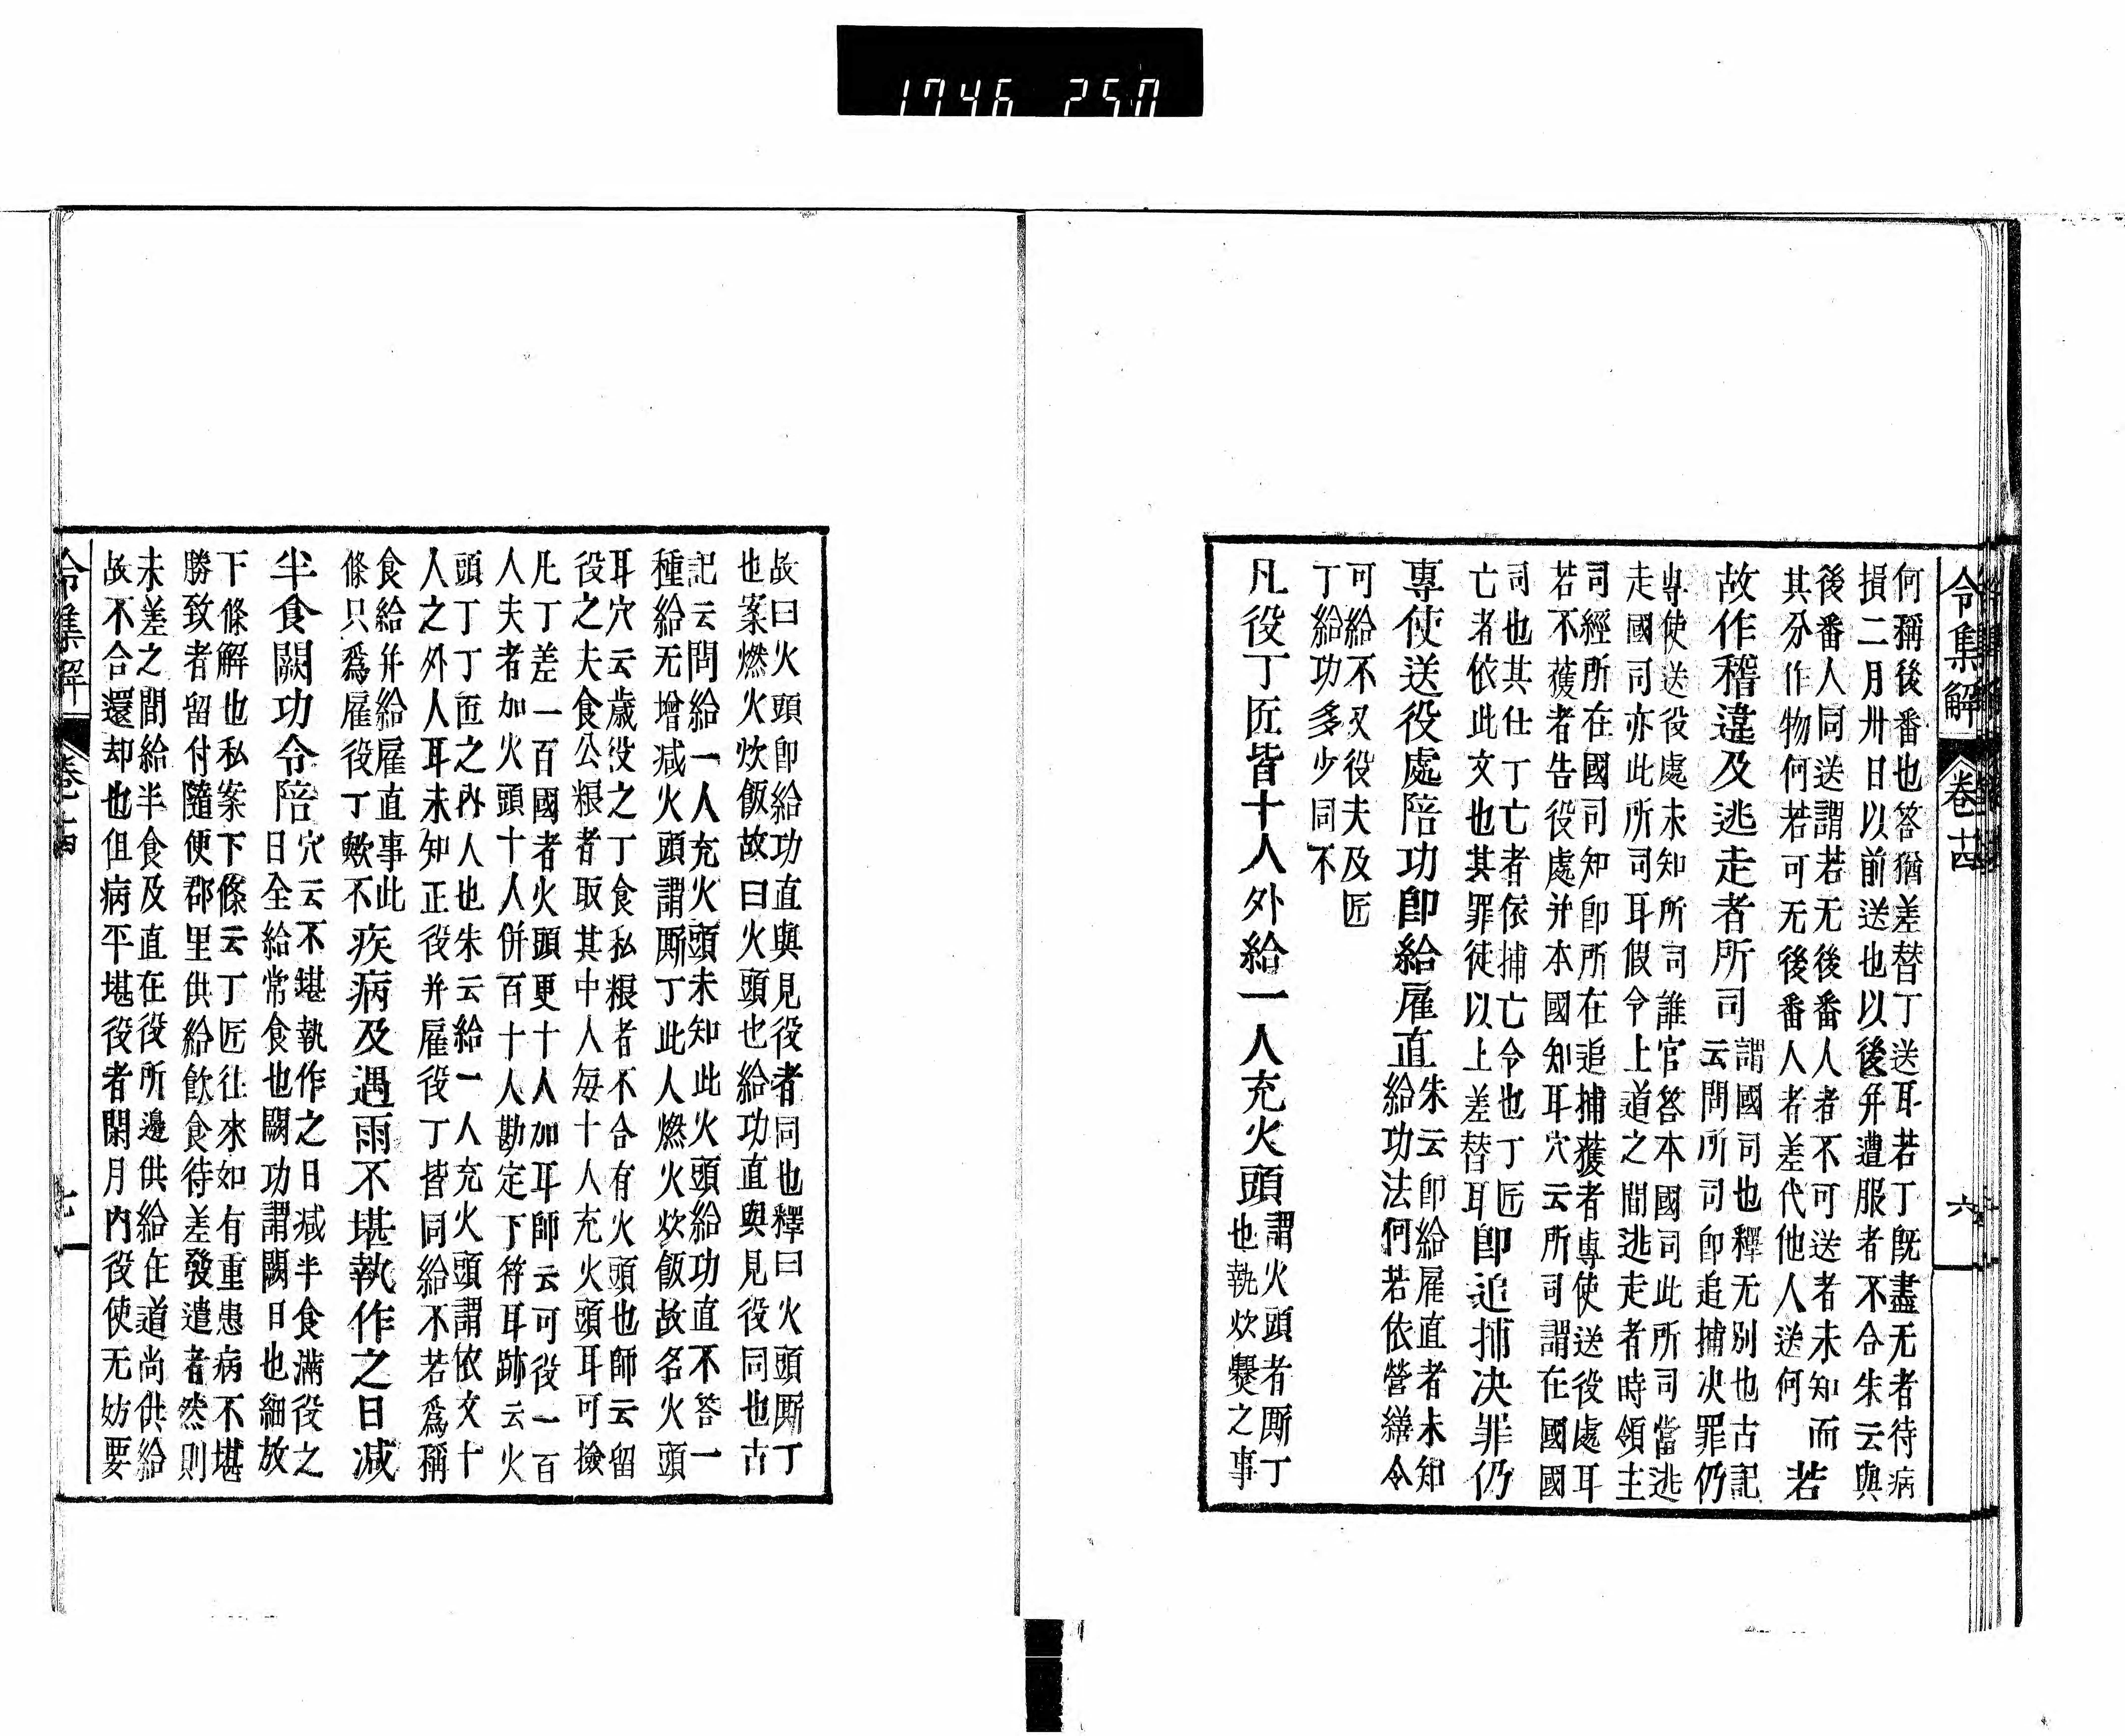 1746 250
令集解 卷十四 六
何稱後番也答猶差替丁送耳若丁既盡无者待病
損二月卅日以前送也以後并遭服者不合朱云與
後番人同送謂若无後番人者不可送者未知而
其分作物何若可无後番人者差代他人送何
若
故作稽違及逃走者所司
謂國司也釋无別也古記
云問所司即追捕决罪仍
專使送役處未知所司誰官答本國司此所司當逃
走國司亦此所司耳假令上道之間逃走者時領主
司經所在國司知即所在追捕獲者專使送役處耳
若不獲者告役處并本國知耳穴云所司謂在國國
司也其仕丁亡者依捕亡令也丁匠
亡者依此文也其罪徒以上差替耳
即追捕决罪仍
專使送役處陪功即給雇直
朱云即給雇直者未知
給功法何若依營繕令
可給不又役夫及匠
丁給功多少同不
凡役丁匠皆十人外給一人充火頭
謂火頭者厮丁
也執炊爨之事
故曰火頭即給功直與見役者同也釋曰火頭厮丁
也案燃火炊飯故曰火頭也給功直與見役同也古
記云問給一人充火頭未知此火頭給功直不答一
種給无增减火頭謂厮丁此人燃火炊飯故名火頭
耳穴云歳役之丁食私粮者不合有火頭也師云留
役之夫食公粮者取其中人每十人充火頭耳可撿
凡丁差一百國者火頭更十人加耳師云可役一百
人夫者加火頭十人併百十人勘定下符耳跡云火
頭丁丁匠之內人也朱云給一人充火頭謂依文十
人之外人耳未知正役并雇役丁皆同給不若爲稱
食給并給雇直事此
條只爲雇役丁歟不
疾病及遇雨不堪執作之日减
半食闕功令陪
穴云不堪執作之日减半食滿役之
日全給常食也闕功謂闕日也細放
下條解也私案下條云丁匠往來如有重患病不堪
勝致者留付隨便郡里供給飲食待差發遣者然則
未差之間給半食及直在役所邊供給在道尚供給
故不合還却也但病平堪役者閑月内役使无妨要
令集解 卷十四 七